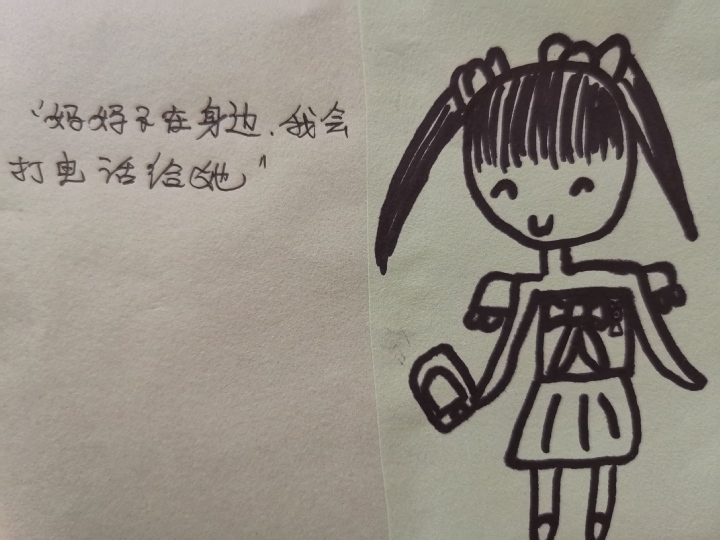 "妈妈不在身边,我会
打电话给她"